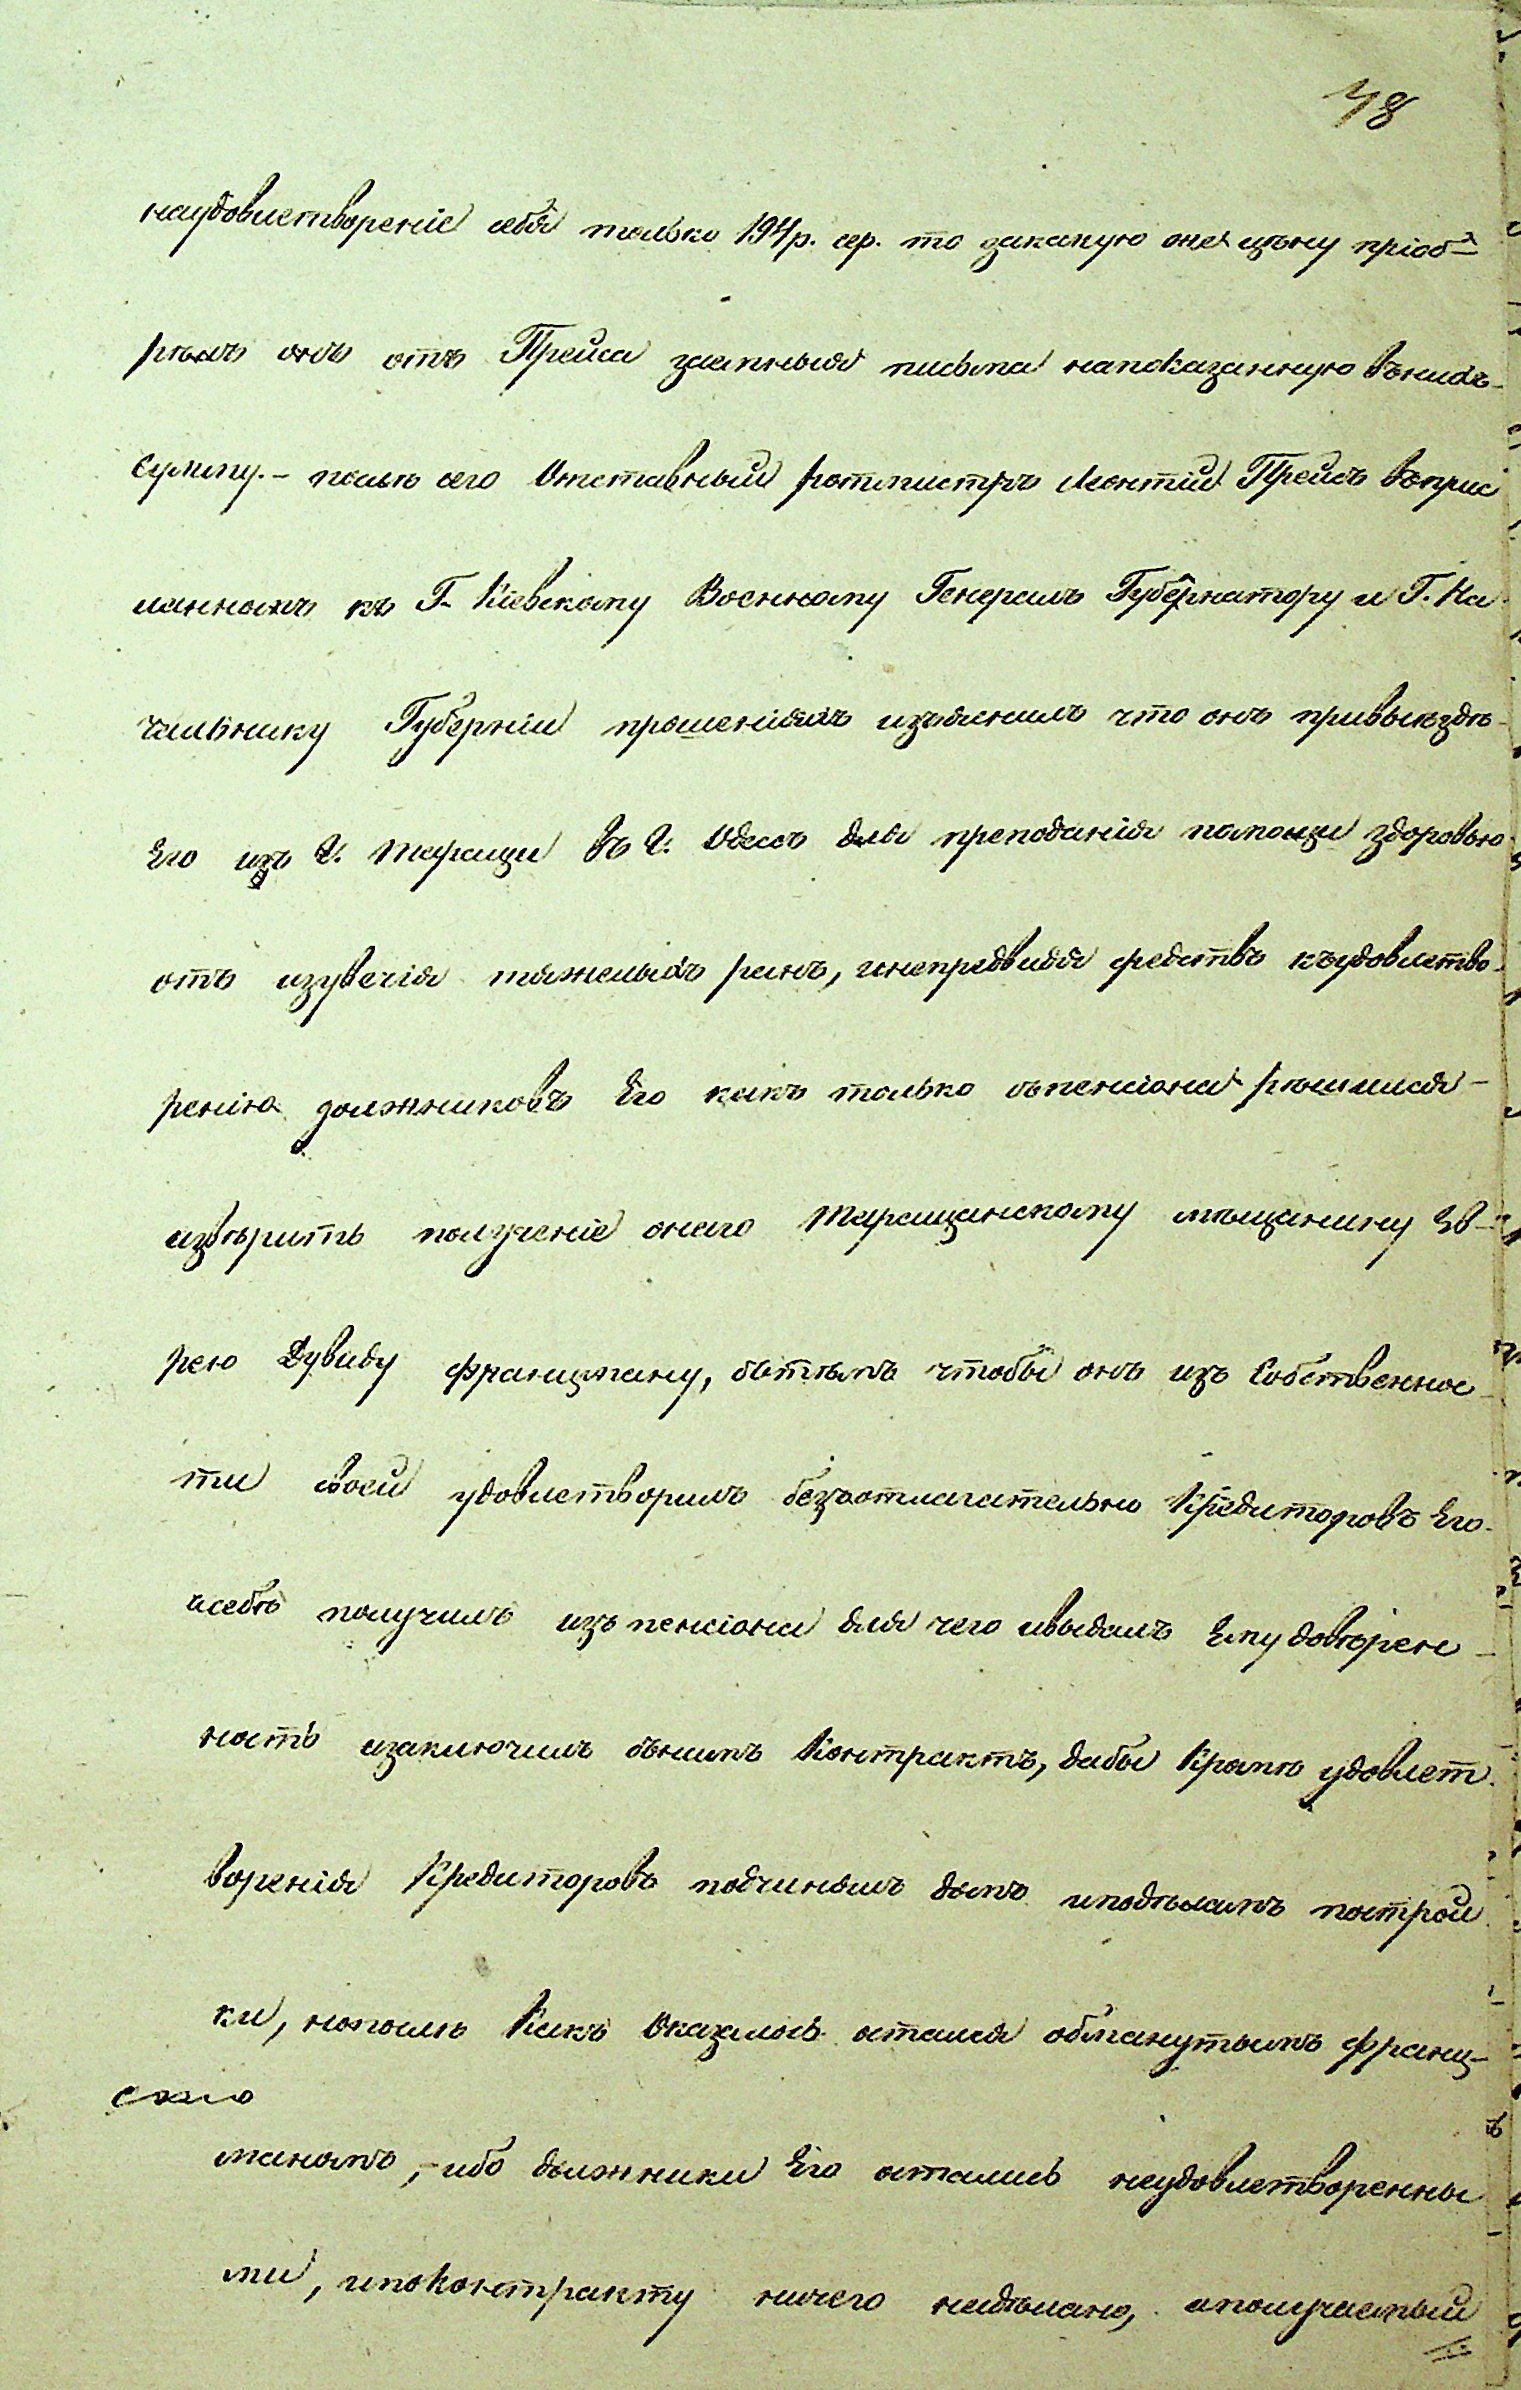 48
наудовлетвореніе себя только 194 р. сер. то закакую онъ цѣну пріоб-
рѣлъ онъ отъ Прейса заемныя письма напоказанную внихъ
сумму. – послѣ сего Отставный ротмистръ Леонтій Прейсъ воприс
ланномъ къ Г. Кіевскому Военному Генералъ Губернатору и Г. На
чальнику Губерніи прошеніяхъ изъяснилъ что онъ привыѣздѣ
Его изъ Г. Таращи въ Г. Одессъ для преподанія помощи здоровью
отъ изувечія тяжелыхъ ранъ, инепредвидя средствъ къудовлетво-
ренію должниковъ Его какъ только съпенсіона рѣшился
извѣрить полученіе онаго Таращанскому мѣщанину Ев-
рею Дувиду Францману, сътѣмъ чтобы онъ изъ Собственнос
ти своей удовлетворилъ безъотлагательно Кредиторовъ Его
исебѣ получилъ изъ пенсіона для чего ивыдалъ Ему довѣрен-
ность изаключилъ сънимъ Контрактъ, дабы Кромѣ удовлет
воренія Кредиторовъ подчинялъ домъ иподѣлалъ построй
ки, нопослѣ Какъ Оказалось остался обманутымъ Франц-
маномъ, – ибо должники Его остались неудовлетворенны
ми, ипоКонтракту ничего несдѣлано, аполучаемый